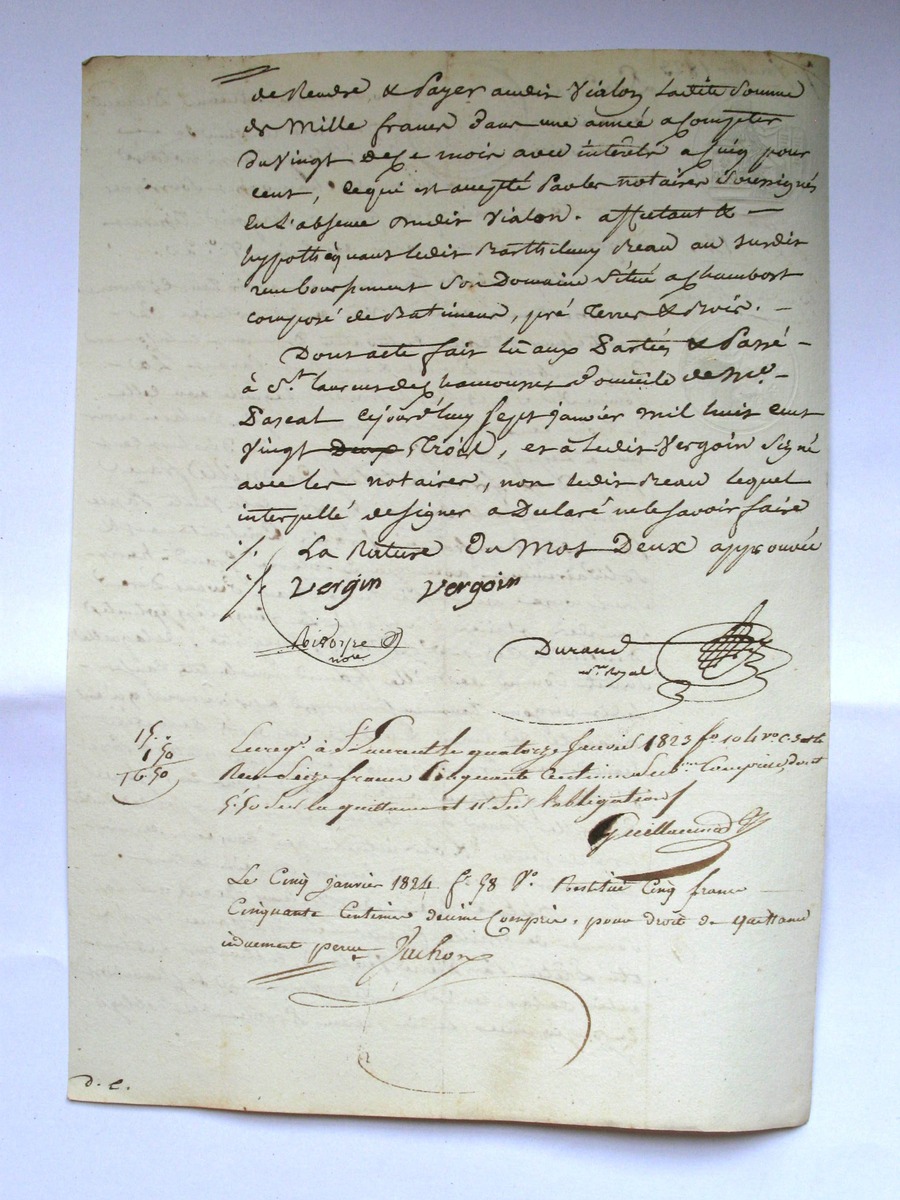 de Rendre & Payer audit Vialon Ladite Somme
de Mille francs dans une année a Compter
Du Vingt de Ce mois avec intérêts a Cinq pour
cent, ce qui est accepté Par les notaires Soussignés
En L'absence dudit Vialon. affectant &
hypothéquant ledit Barthélemy Reau au susdit
remboursement Son Domaine Situé a Chambost
composé de Batiment, pré Terres & Bois. –
Dont acte fait lu aux Parties & Passé –
à St. laurent de Chamousset Domicile de Me. –
Pascal Cejourd'huy Sept janvier mil huit cent
Vingt Deux Trois, et à Ledit Vergoin Signé
avec les notaires, non ledit Reau lequel
interpellé de signer a Declaré ne le savoir faire
La Rature Du Mot Deux approuvée
Vergin Vergoin
nore
Durand
re Royal
15.
1 50
16 50
Enreg. à St Laurent le quatorze Janvier 1823 fo 104 vo C.
Reçu Seize francs Cinquante Centimes Subon Comprise, dont
5.50 Sur la quittance et 11 Sur l'obligation
Guillaumod
Le Cinq janvier 1824 f. 58 Vo. Restitué Cinq francs
Cinquante Centimes decime Compris. pour droit de quittance
induement percu
d. C.